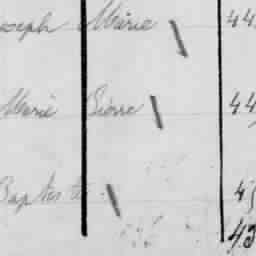 oseph Marie 44
Marie Pierre 44
Baptiste 45
43